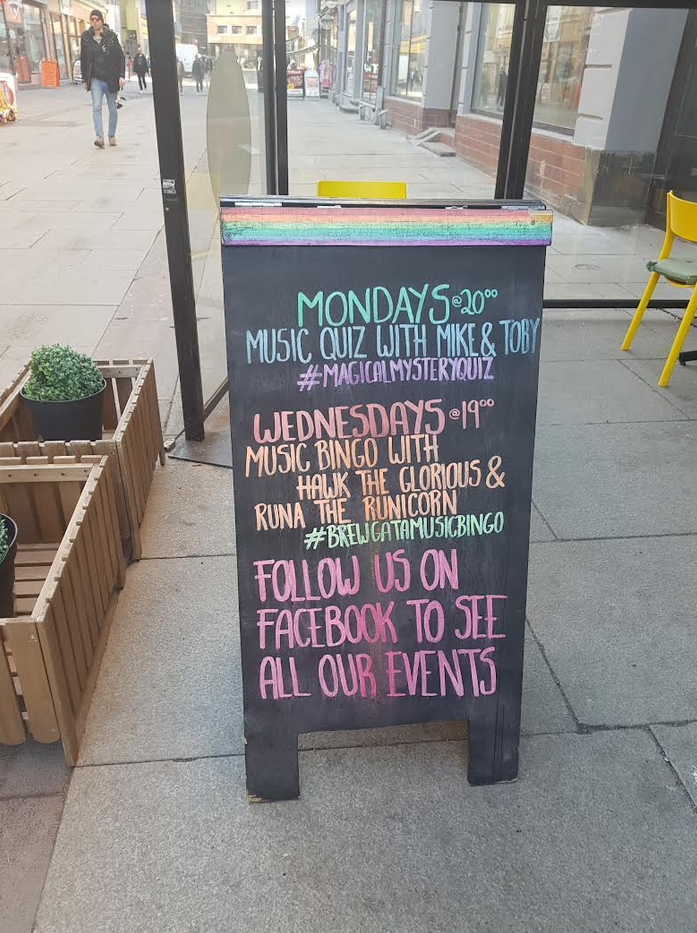 MONDAYS @ 20⁰⁰
MUSIC QUIZ WITH MIKE & TOBY
#MAGICALMYSTERYQUIZ
WEDNESDAYS @ 19⁰⁰
MUSIC BINGO WITH
HAWK THE GLORIOUS &
RUNA THE RUNICORN
#BREWGATAMUSICBINGO
FOLLOW US ON
FACEBOOK TO SEE
ALL OUR EVENTS